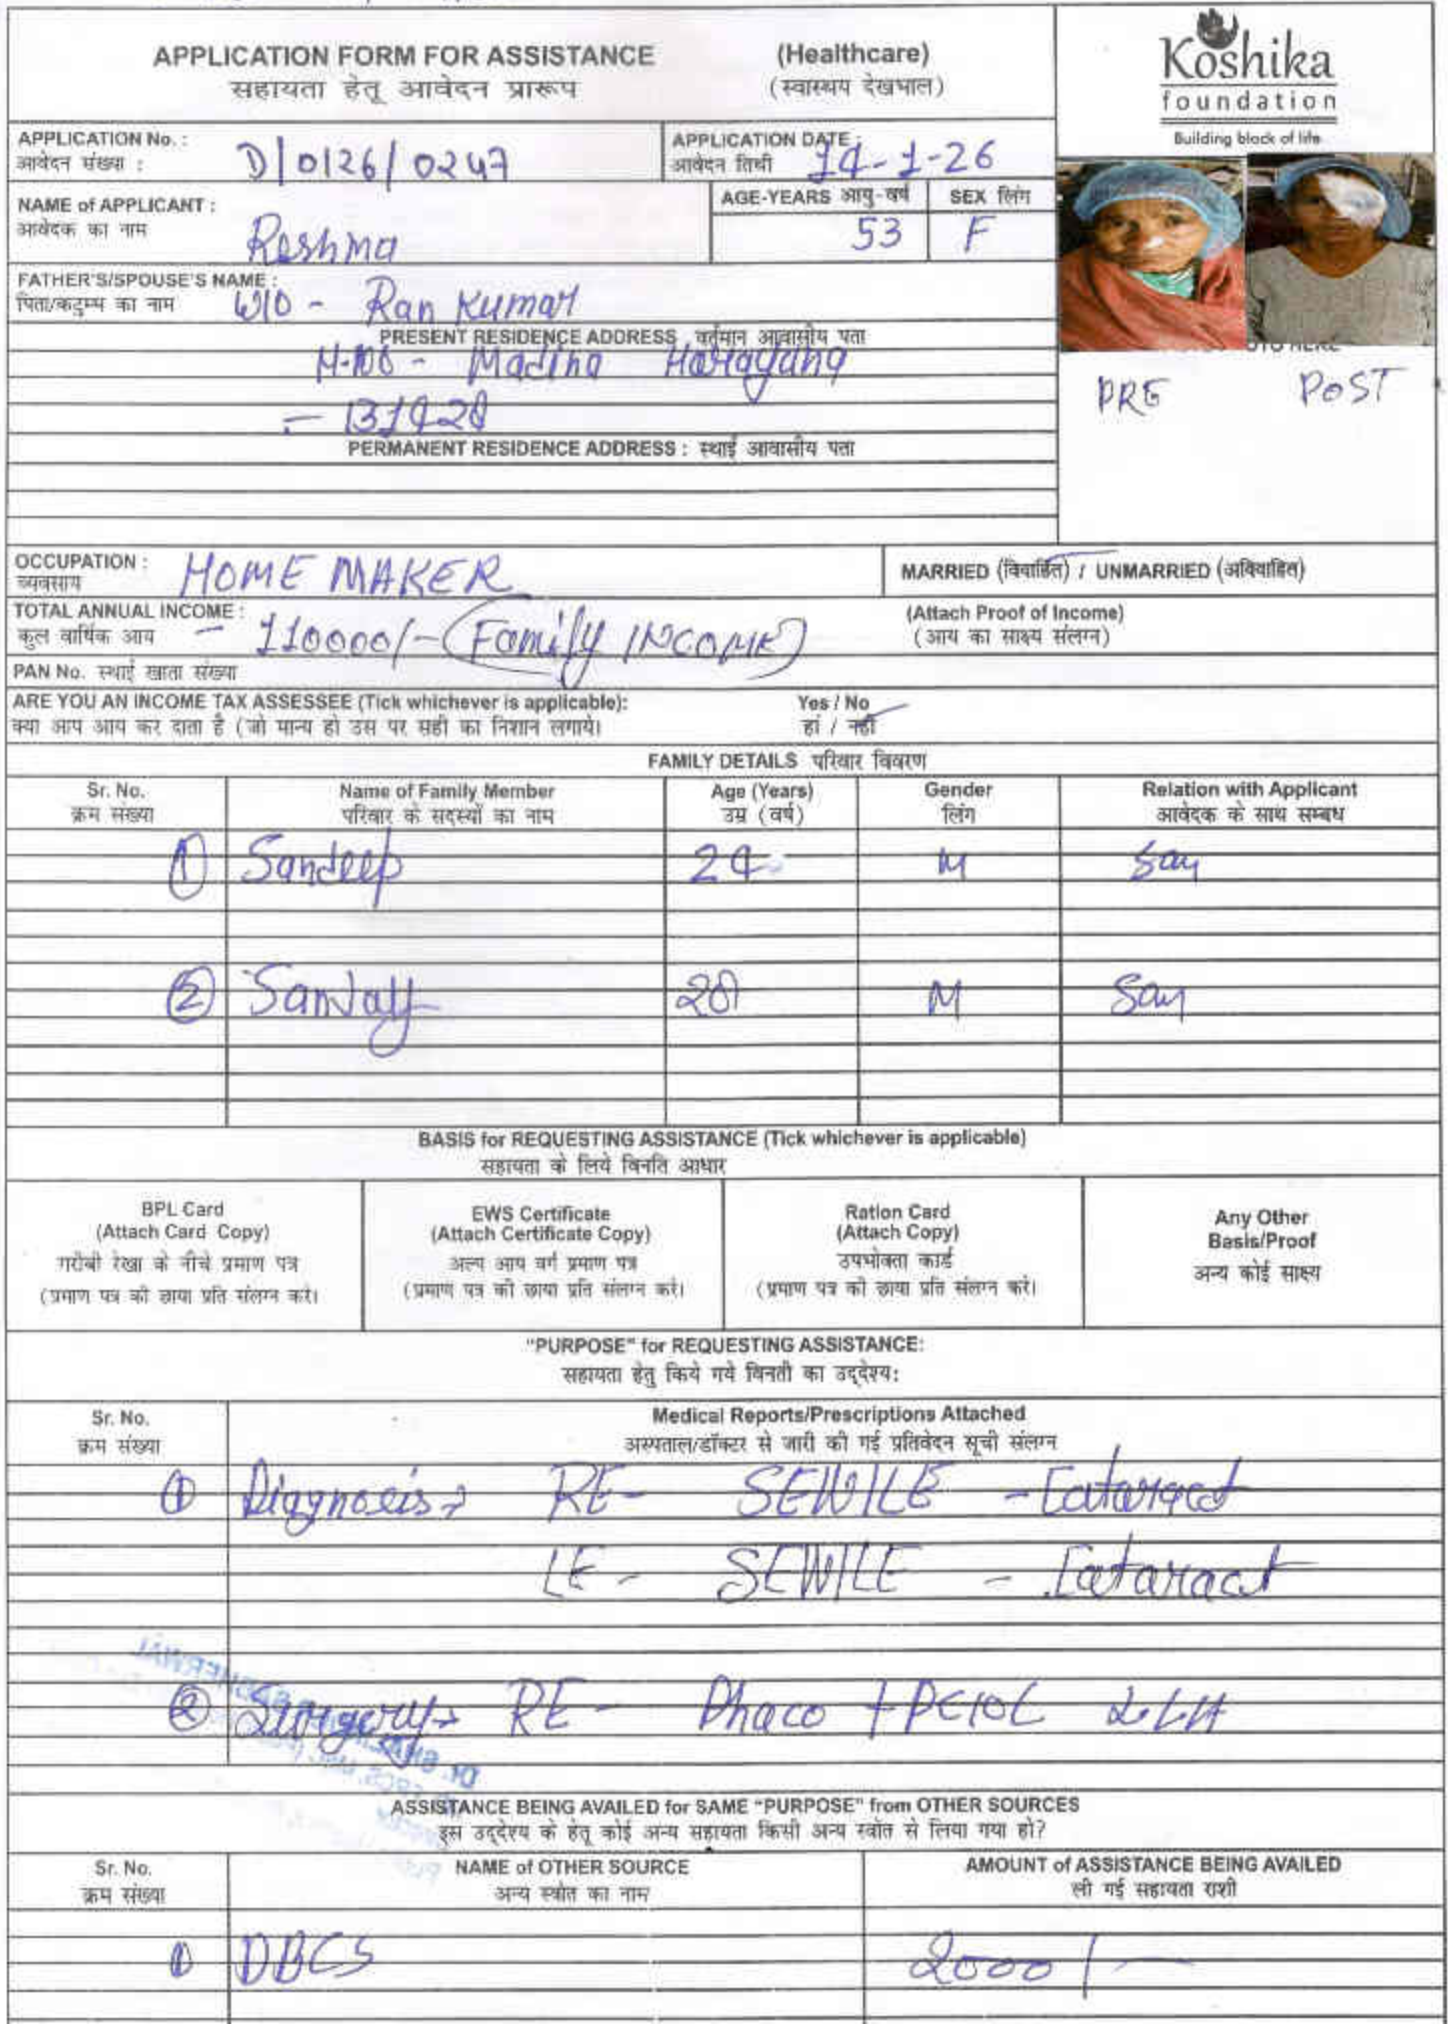 APPLICATION FORM FOR ASSISTANCE (Healthcare)
सहायता हेतू आवेदन प्रारूप (स्वास्थय देखभाल)
Koshika
foundation
Building block of life
APPLICATION No. :
आवेदन संख्या : D/0126/0247
APPLICATION DATE :
आवेदन तिथी 14-1-26
NAME of APPLICANT :
आवेदक का नाम Reshma
AGE-YEARS आयु-वर्ष SEX लिंग
53 F
FATHER'S/SPOUSE'S NAME :
पिता/कटुम्प का नाम W/O - Ran Kumar
PRESENT RESIDENCE ADDRESS वर्तमान आवासीय पता
Madina Harayana
PRE POST
PERMANENT RESIDENCE ADDRESS : स्थाई आवासीय पता
OCCUPATION :
व्यवसाय HOME MAKER
MARRIED (विवाहित) / UNMARRIED (अविवाहित)
TOTAL ANNUAL INCOME :
कुल वार्षिक आय - 110000/- (Family INCOME)
(Attach Proof of Income)
(आय का साक्ष्य संलग्न)
PAN No. स्थाई खाता संख्या
ARE YOU AN INCOME TAX ASSESSEE (Tick whichever is applicable): Yes / No
क्या आप आय कर दाता है (जो मान्य हो उस पर सही का निशान लगाये। हां / नहीं
FAMILY DETAILS परिवार विवरण
Sr. No. Name of Family Member Age (Years) Gender Relation with Applicant
क्रम संख्या परिवार के सदस्यों का नाम उम्र (वर्ष) लिंग आवेदक के साथ सम्बध
1 Sandeep M Son
2 Sanjay M Son
BASIS for REQUESTING ASSISTANCE (Tick whichever is applicable)
सहायता के लिये विनति आधार
BPL Card
(Attach Card Copy)
गरीबी रेखा के नीचे प्रमाण पत्र
(प्रमाण पत्र की छाया प्रति संलग्न करे।
EWS Certificate
(Attach Certificate Copy)
अल्प आय वर्ग प्रमाण पत्र
(प्रमाण पत्र की छाया प्रति संलग्न करे।
Ration Card
(Attach Copy)
उपभोक्ता कार्ड
(प्रमाण पत्र की छाया प्रति संलग्न करे।
Any Other
Basis/Proof
अन्य कोई साक्ष्य
"PURPOSE" for REQUESTING ASSISTANCE:
सहायता हेतु किये गये विनती का उद्देश्य:
Sr. No. Medical Reports/Prescriptions Attached
क्रम संख्या अस्पताल/डॉक्टर से जारी की गई प्रतिवेदन सूची संलग्न
1 Diagnosis → RE- SENILE - Cataract
LE - SENILE - Cataract
2 Surgery → RE- Phaco + PCIOL
ASSISTANCE BEING AVAILED for SAME "PURPOSE" from OTHER SOURCES
इस उद्देश्य के हेतू कोई अन्य सहायता किसी अन्य स्त्रोत से लिया गया हो?
Sr. No. NAME of OTHER SOURCE AMOUNT of ASSISTANCE BEING AVAILED
क्रम संख्या अन्य स्त्रोत का नाम ली गई सहायता राशी
1 DBCS 2000/-